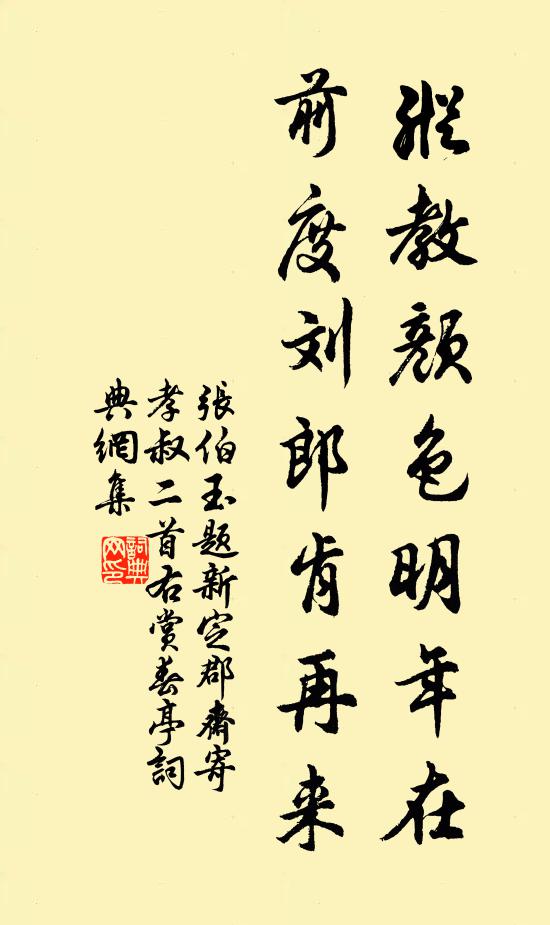 縱教顏色明年在
前度刘郎肯再来
張伯玉題新定郡齋寄
孝叔二首右賞春亭詞
典網集
詞典网印